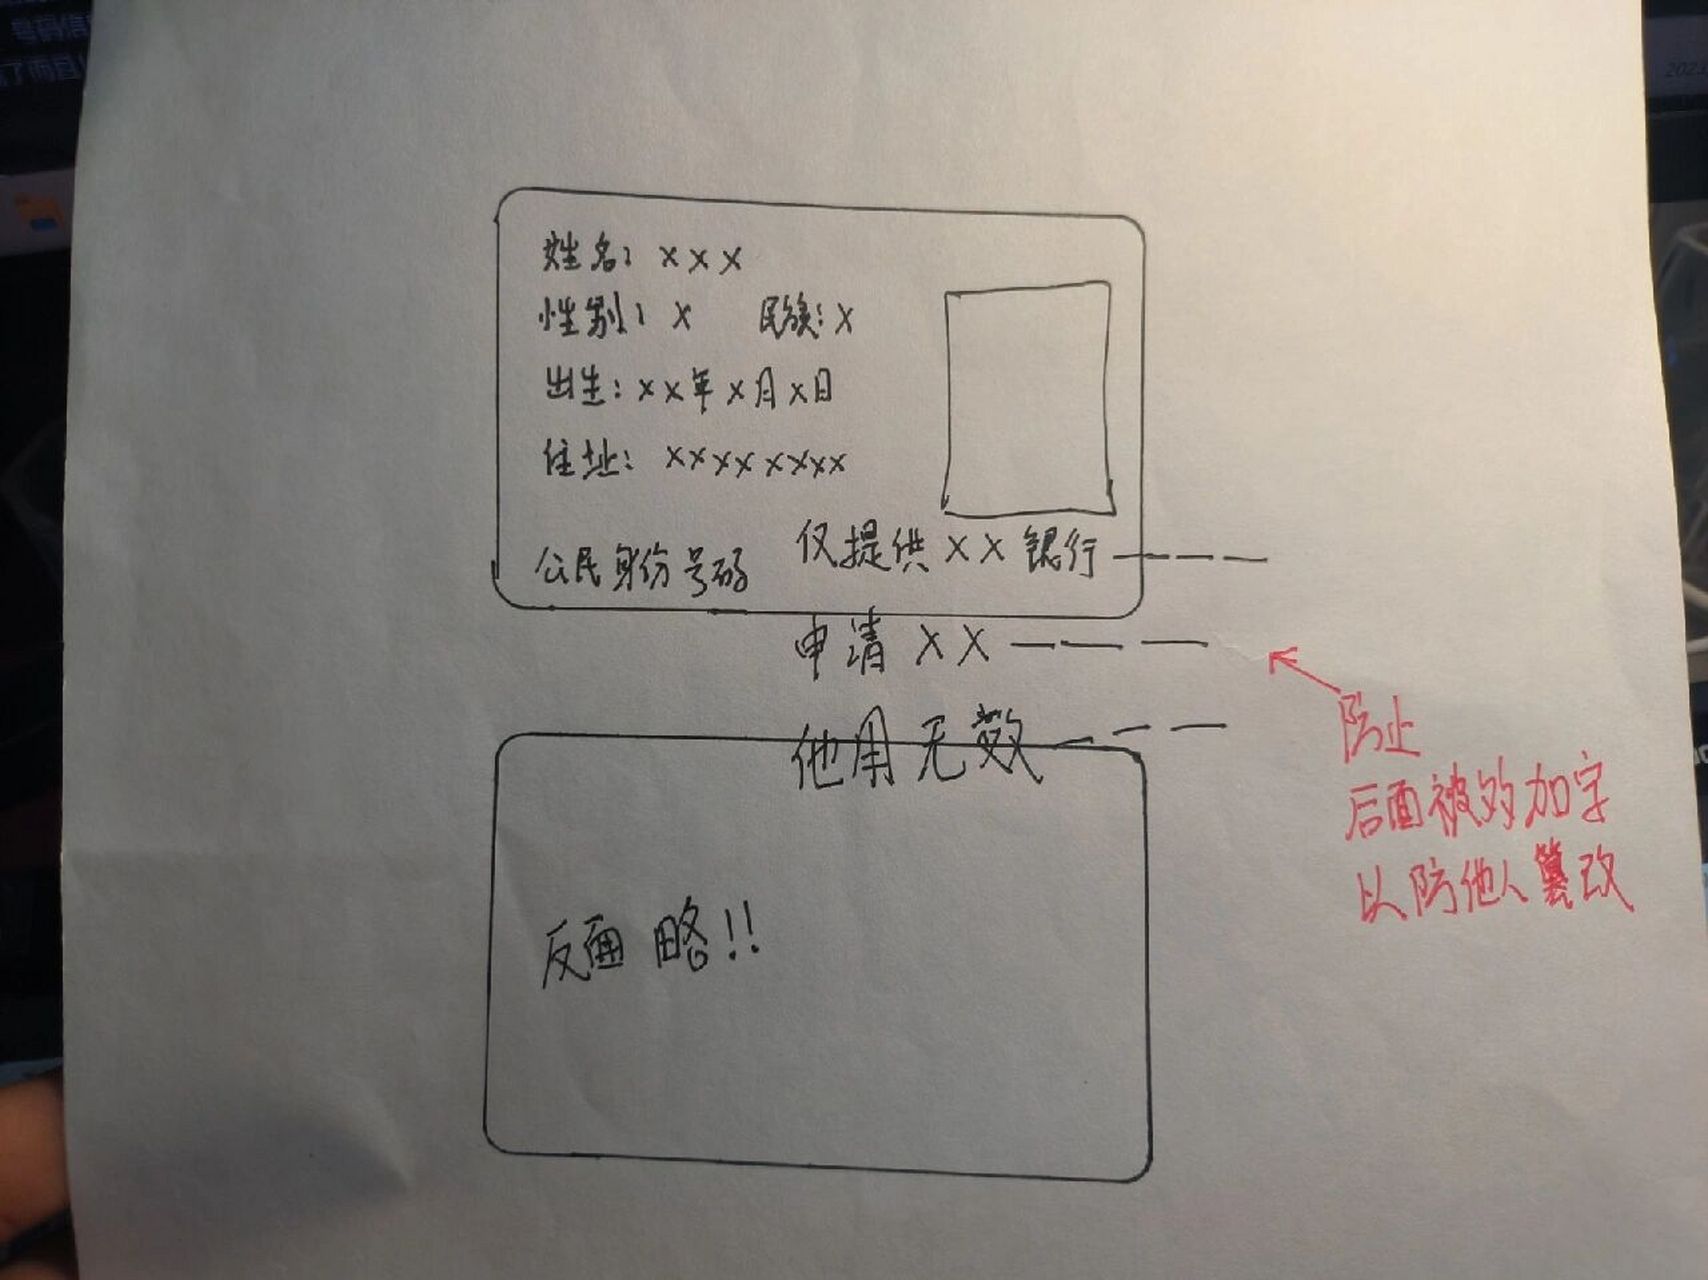 姓名: xxx
性别: x 民族: x
出生: xx年x月x日
住址: xxxxxxxx
公民身份号码
仅提供XX银行————
申请XX————
他用无效———
反面 略!!
防止
后面被的加字
以防他人篡改